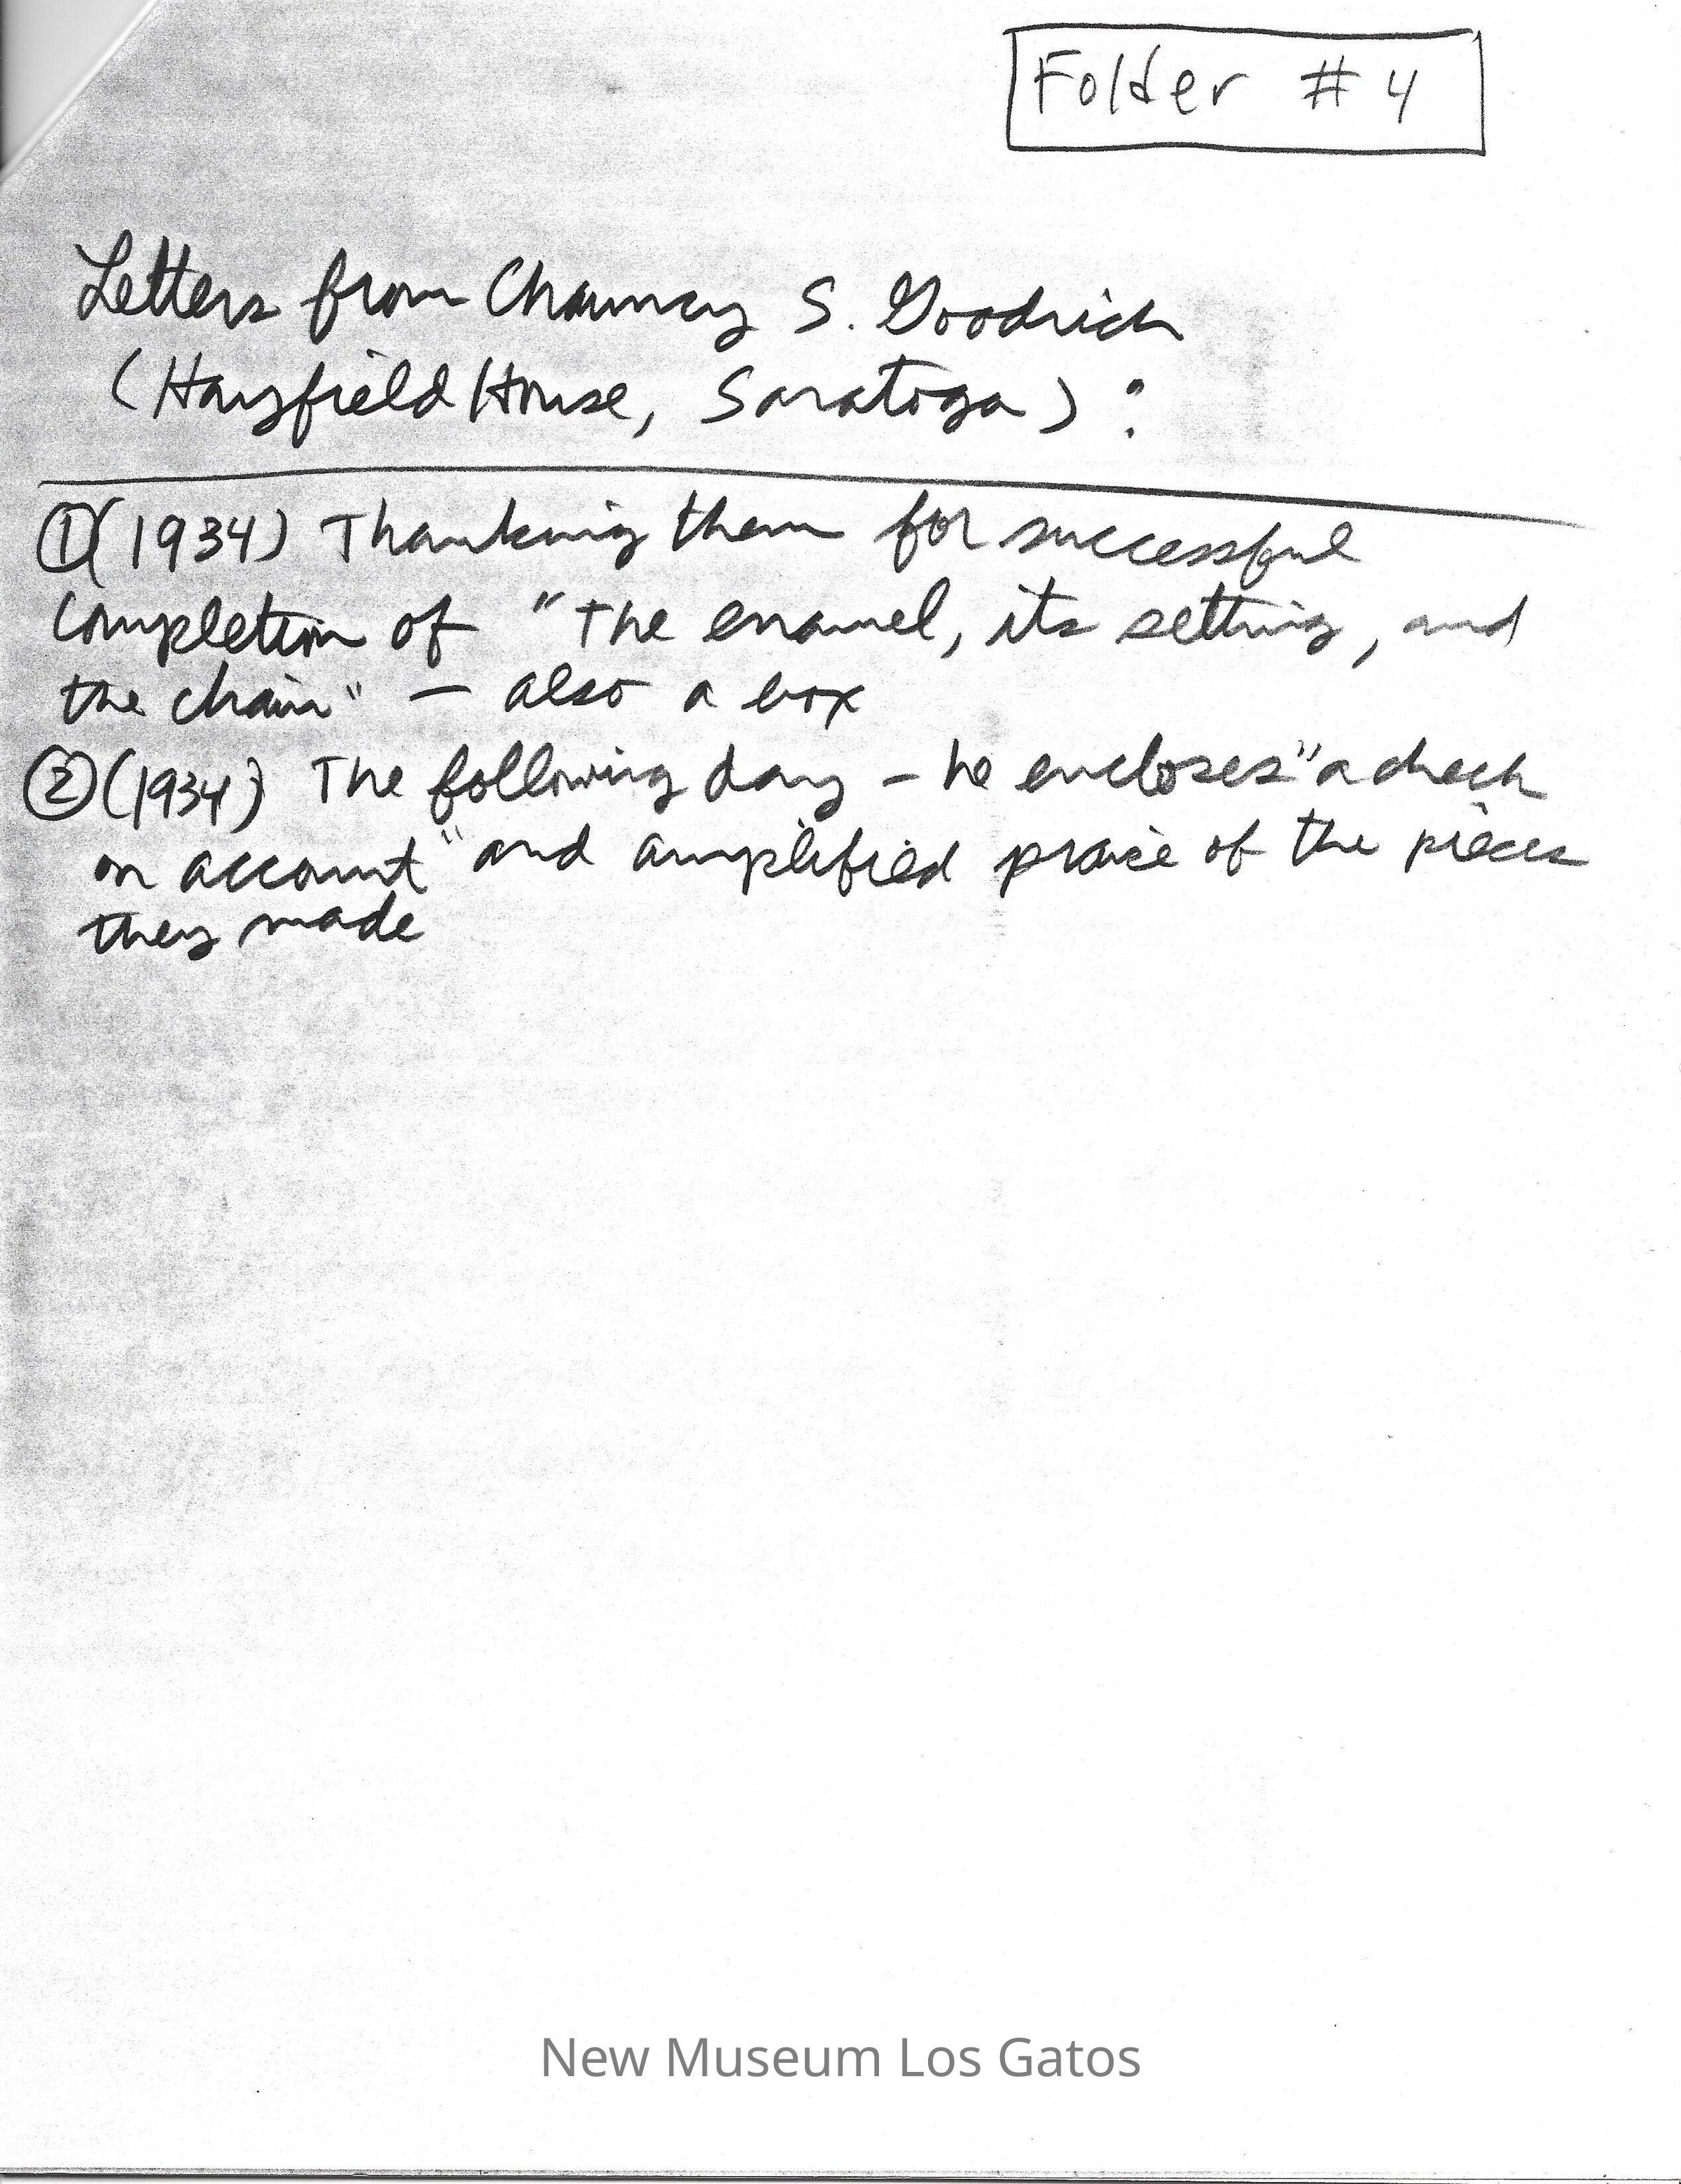 Folder #4
Letters from Chauncey S. Goodrich
(Hayfield House, Saratoga):
①(1934) Thanking them for successful
completion of "the enamel, its setting, and
the chain" – also a box
②(1934) The following day – he encloses "a check
on account" and amplified praise of the pieces
they made
New Museum Los Gatos